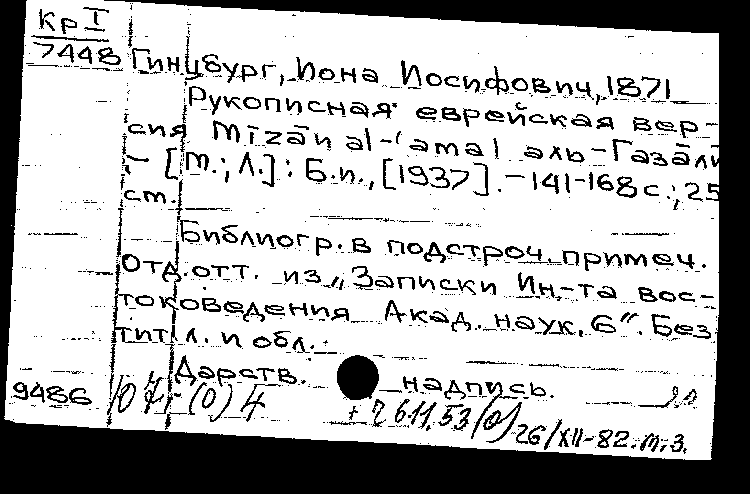 Кр I
7448 Гинцбург, Иона Иосифович, 1871
Рукописная еврейская вер-
сия Mīzān al-ʿamal аль-Газāли
.- [М.; Л.]: Б.и., [1937]. - 141-168 с.; 25
ст.
Библиогр. в подстроч. примеч.
Отд. отт. из „Записки Ин-та вос-
токоведения Акад. наук, 6". Без
тит. л. и обл.
Дарств. надпись.
9486 (0) 4 + 7611.53(0) 26/XII-82. м.з.